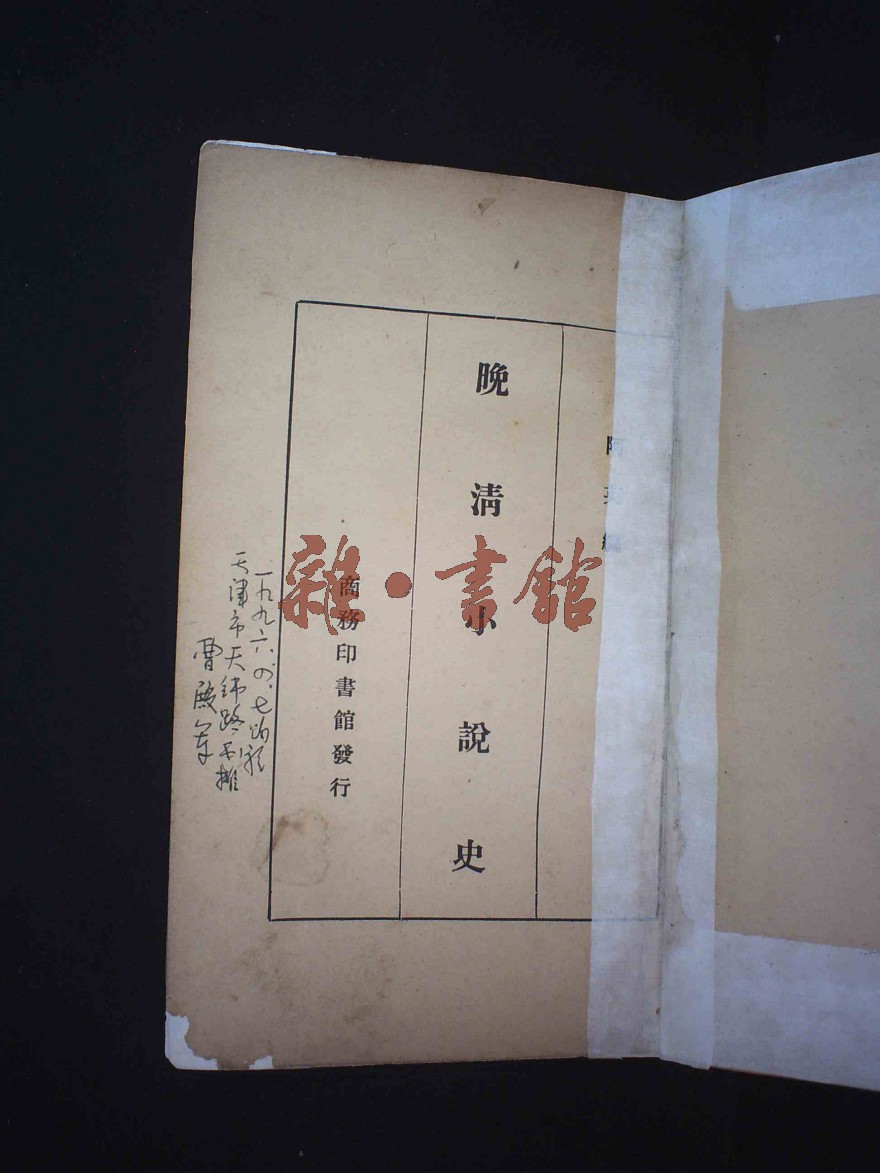 阿英編
晚清小說史
商務印書館發行
雜·書館
一九九六.四.七
天津市天緯路
曹殿